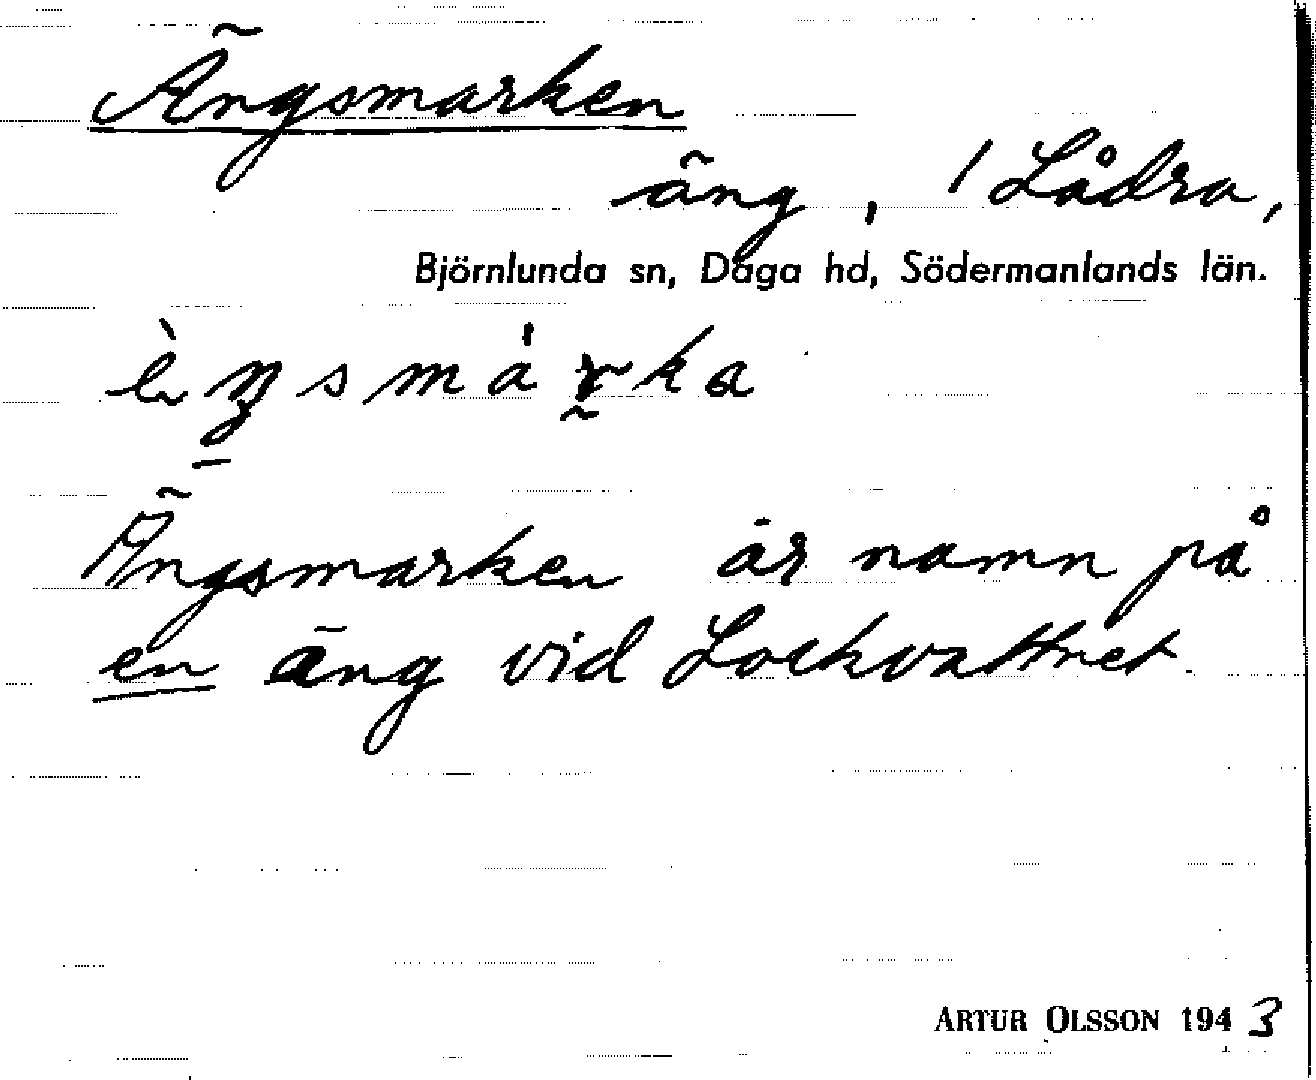 Ängsmarken
äng, / Lådra,
Björnlunda sn, Daga hd, Södermanlands län.
Ängsmarken är namn på
en äng vid Lockvattnet.
ARTUR OLSSON 1943